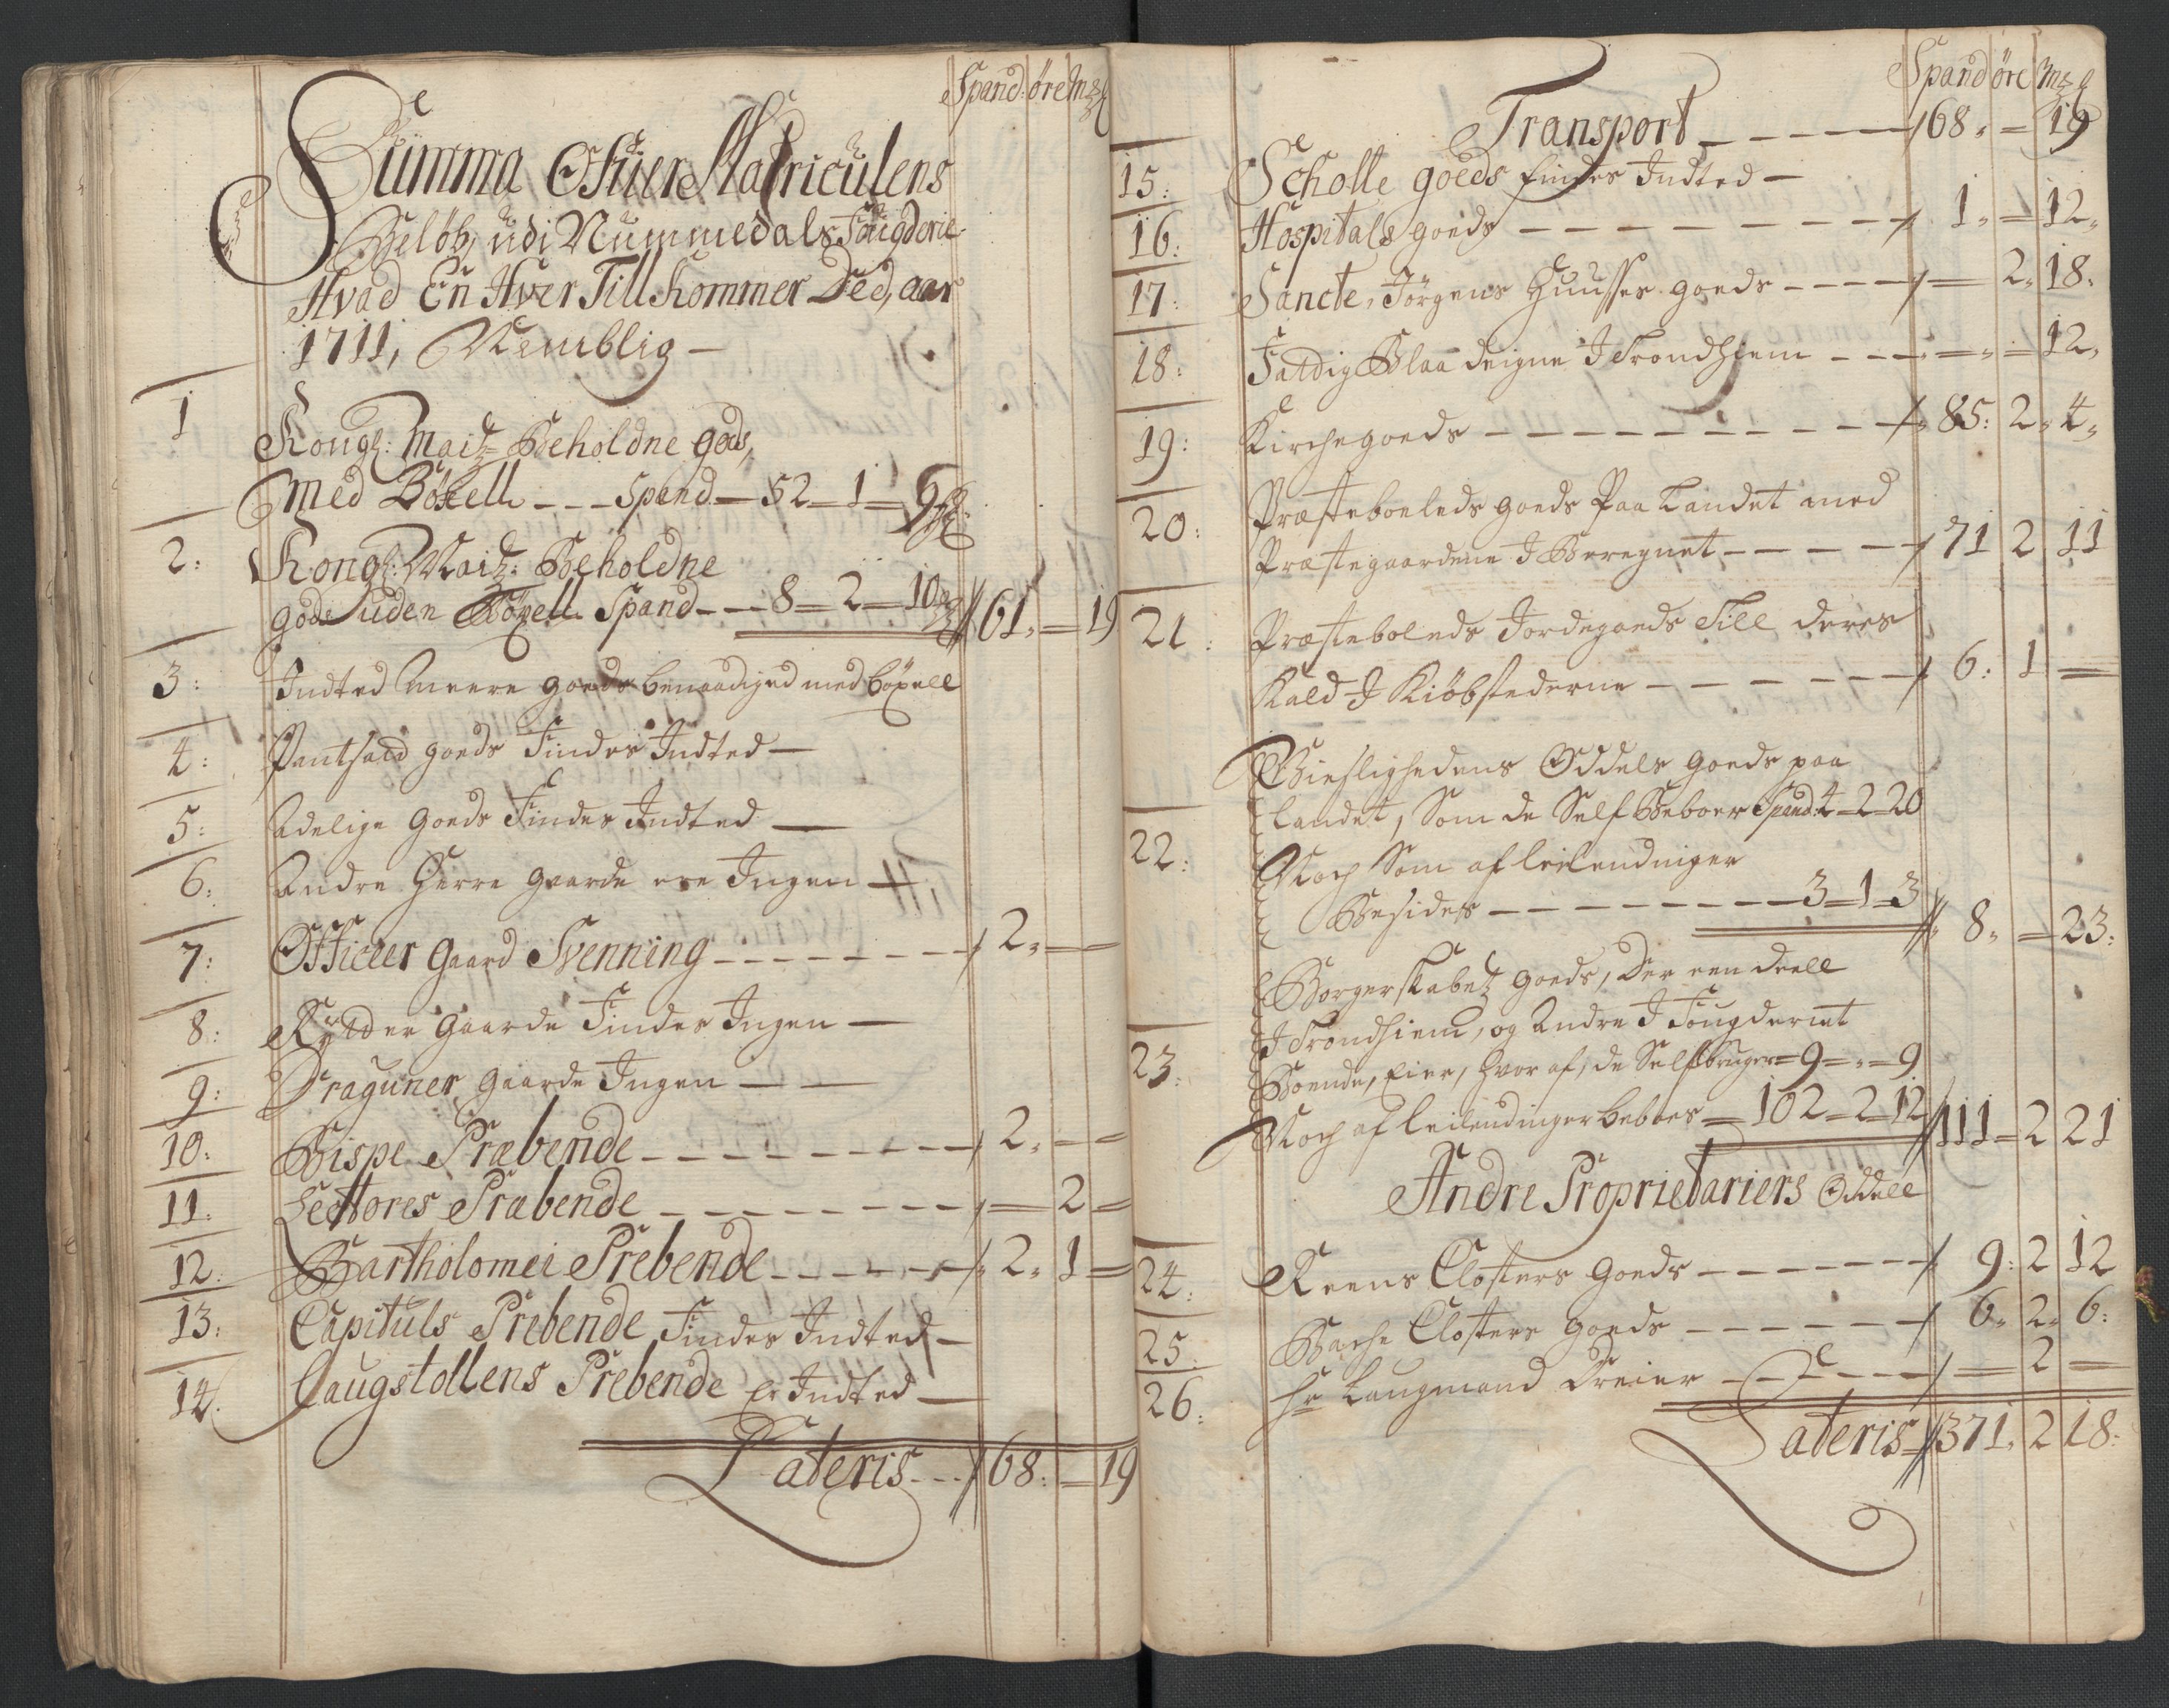 Spand öre Mzl
Summa Ofuer Matriculens
Beløb, udi Nummedals Fougderie
Hvad En Hver Till Kommer Ded, aar
1711, Nemblig –
1 Kongl: Maitz Beholdne gods,
med Böxell - - - Spand – 52 – 1 – 9
2: Kongl: Maitz: Beholdne
gods uden Böxell Spand - - 8 – 2 – 10 61 „ – 19
3: Indted Meere goeds benaadiged med böxell
4: Pantsatd goeds Findes Indted –
5: Adelige Goeds Findes Indted –
6: Andre Herre gaarde ere Ingen –
7: Officeer gaard Svenning - - - - - - - - 2 „ –
8: Rytter Gaarde Findes Ingen –
9: Draguner gaarde Ingen – –
10: Bispe Præbende - - - - - - - - - 2 „ – –
11: Lectores Præbende - - - - - - - - – 2 –
12: Bartholomei Prebende - - - - - - 2 „ 1 –
13: Capituls Prebende Findes Indted –
14. Laugstollens Prebende er Indted –
Lateris - - - 68: – 19
Spand öre Mzl
Transport - - - - - 68 „ – 19
15: Scholle goeds findes Indted –
16: Hospitals goeds - - - - - - - - - 1 „ – 12 „
17: Sancte, Jörgens Huusses goeds - - - - – 2 „ 18:
18: Fatdig Blaa deigne I Trondhiem - - - – „ – 12 „
19: Kirchegoeds - - - - - - - - - - 85: 2 „ 4 „
20: Præsteboeleds goeds Paa Landet med
Præstegaardene I Beregnet - - - - - 71 2 11
21: Præsteboleds Jordegoeds Till deres
Kald I Kiöbstederne - - - - - - 6: 1 –
Giestlighedens Oddels Goeds paa
landet, Som de Self Beboer Spand 4 – 2 – 20
22: Noch Som af leilendniger
Besides - - - - - - - - 3 – 1 – 3 8 „ – 23:
Borgerskabetz goeds, Der een deell
I Trondhiem, og Andre I Fougderiet
23: Boende, Eier, hvor af, de Self bruger – 9 – „ – 9
Noch af leilendinger beboes – 102 – 2 – 12 111 – 2 21
Andre Proprietariers Oddell
24: Reens Closters Goeds - - - - - - - 9: 2 12
25. Bache Closters Goeds - - - - - - 6 „ 2 „ 6:
26: Hr Laugmand Dreier - - - - - - – 2 –
Lateris 371 „ 2 18: